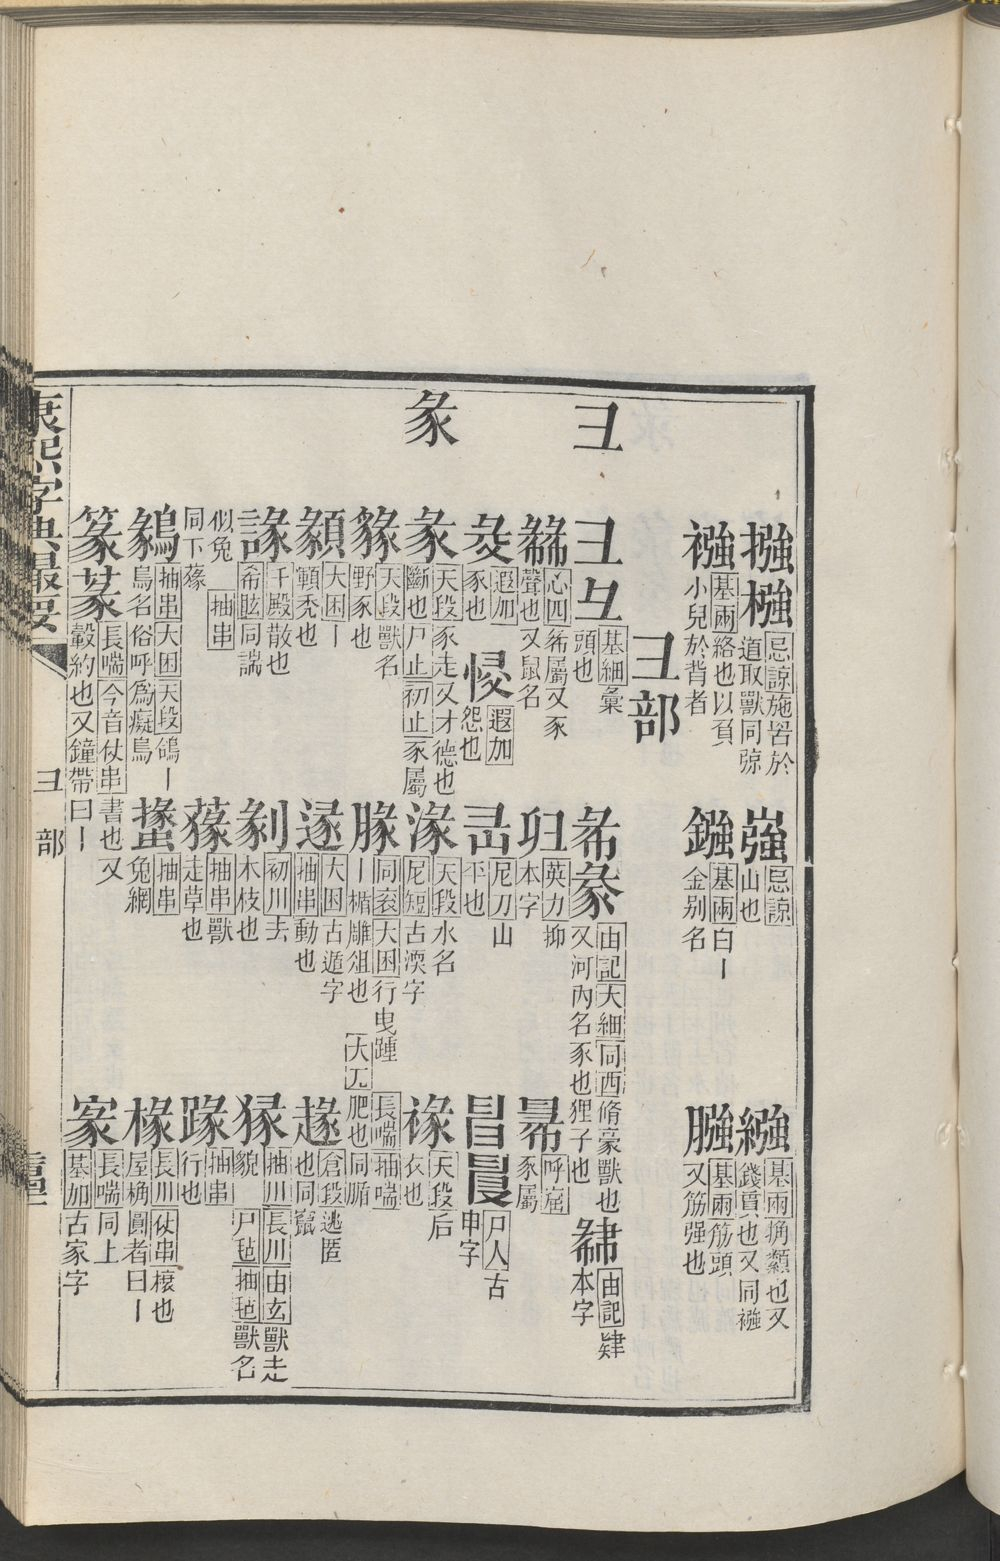 摾橿 忌諒 施罟於道取獸同弶
嵹 忌諒 山也
繈 基兩 猾纇也又錢貫也又同襁
襁 基兩 絡也以負小兒於背者
鏹 基兩 白丨金别名
膙 基兩 筋頭又筋强也
彐部
彐
彐彑 基細 彙頭也
㣇彖 由記 大細 同西脩豪獸也又河內名豕也狸子也
䏌 由記 肄本字
心四 㣇屬又豕聲也又鼠名
英力 抑本字
呼屈 豕屬
遐加 豕也
遐加 怨也
尼刀 山平也
尸人 古申字
彖
彖 天段 豕走又才德也斷也 尸止 初止 豕屬
湪 天段 水名 尼短 古渜字
褖 天段 后衣也
天段 獸名野豕也
腞 同衮 大困 行曳踵丨楯雕俎也 大兀 肥也同腯 長喘 抽喘
大困 丨顐秃也
遂 大困 古遁字 抽串 動也
倉段 逃匿也同竄
千殿 散也
剶 初川 去木枝也
猭 抽川 長川 由玄 獸走貌 尸毡 抽毡 獸名
希眩 同諯
似兔 抽串
同下蒃
蒃 抽串 獸走草也
踭 抽串 行也
鶨 抽串 大困 天段 鴿丨鳥名俗呼爲癡鳥
抽串 兔網
椽 長川 仗串 榱也屋桷圓者曰丨
篆 長喘 今音仗串 書也又轂約也又鐘帶曰丨
長喘 同上
家 基加 古家字
康熙字典最要
彐部